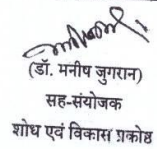 (डॉ. मनीष जुगरान)
सह-संयोजक
शोध एवं विकास प्रकोष्ठ